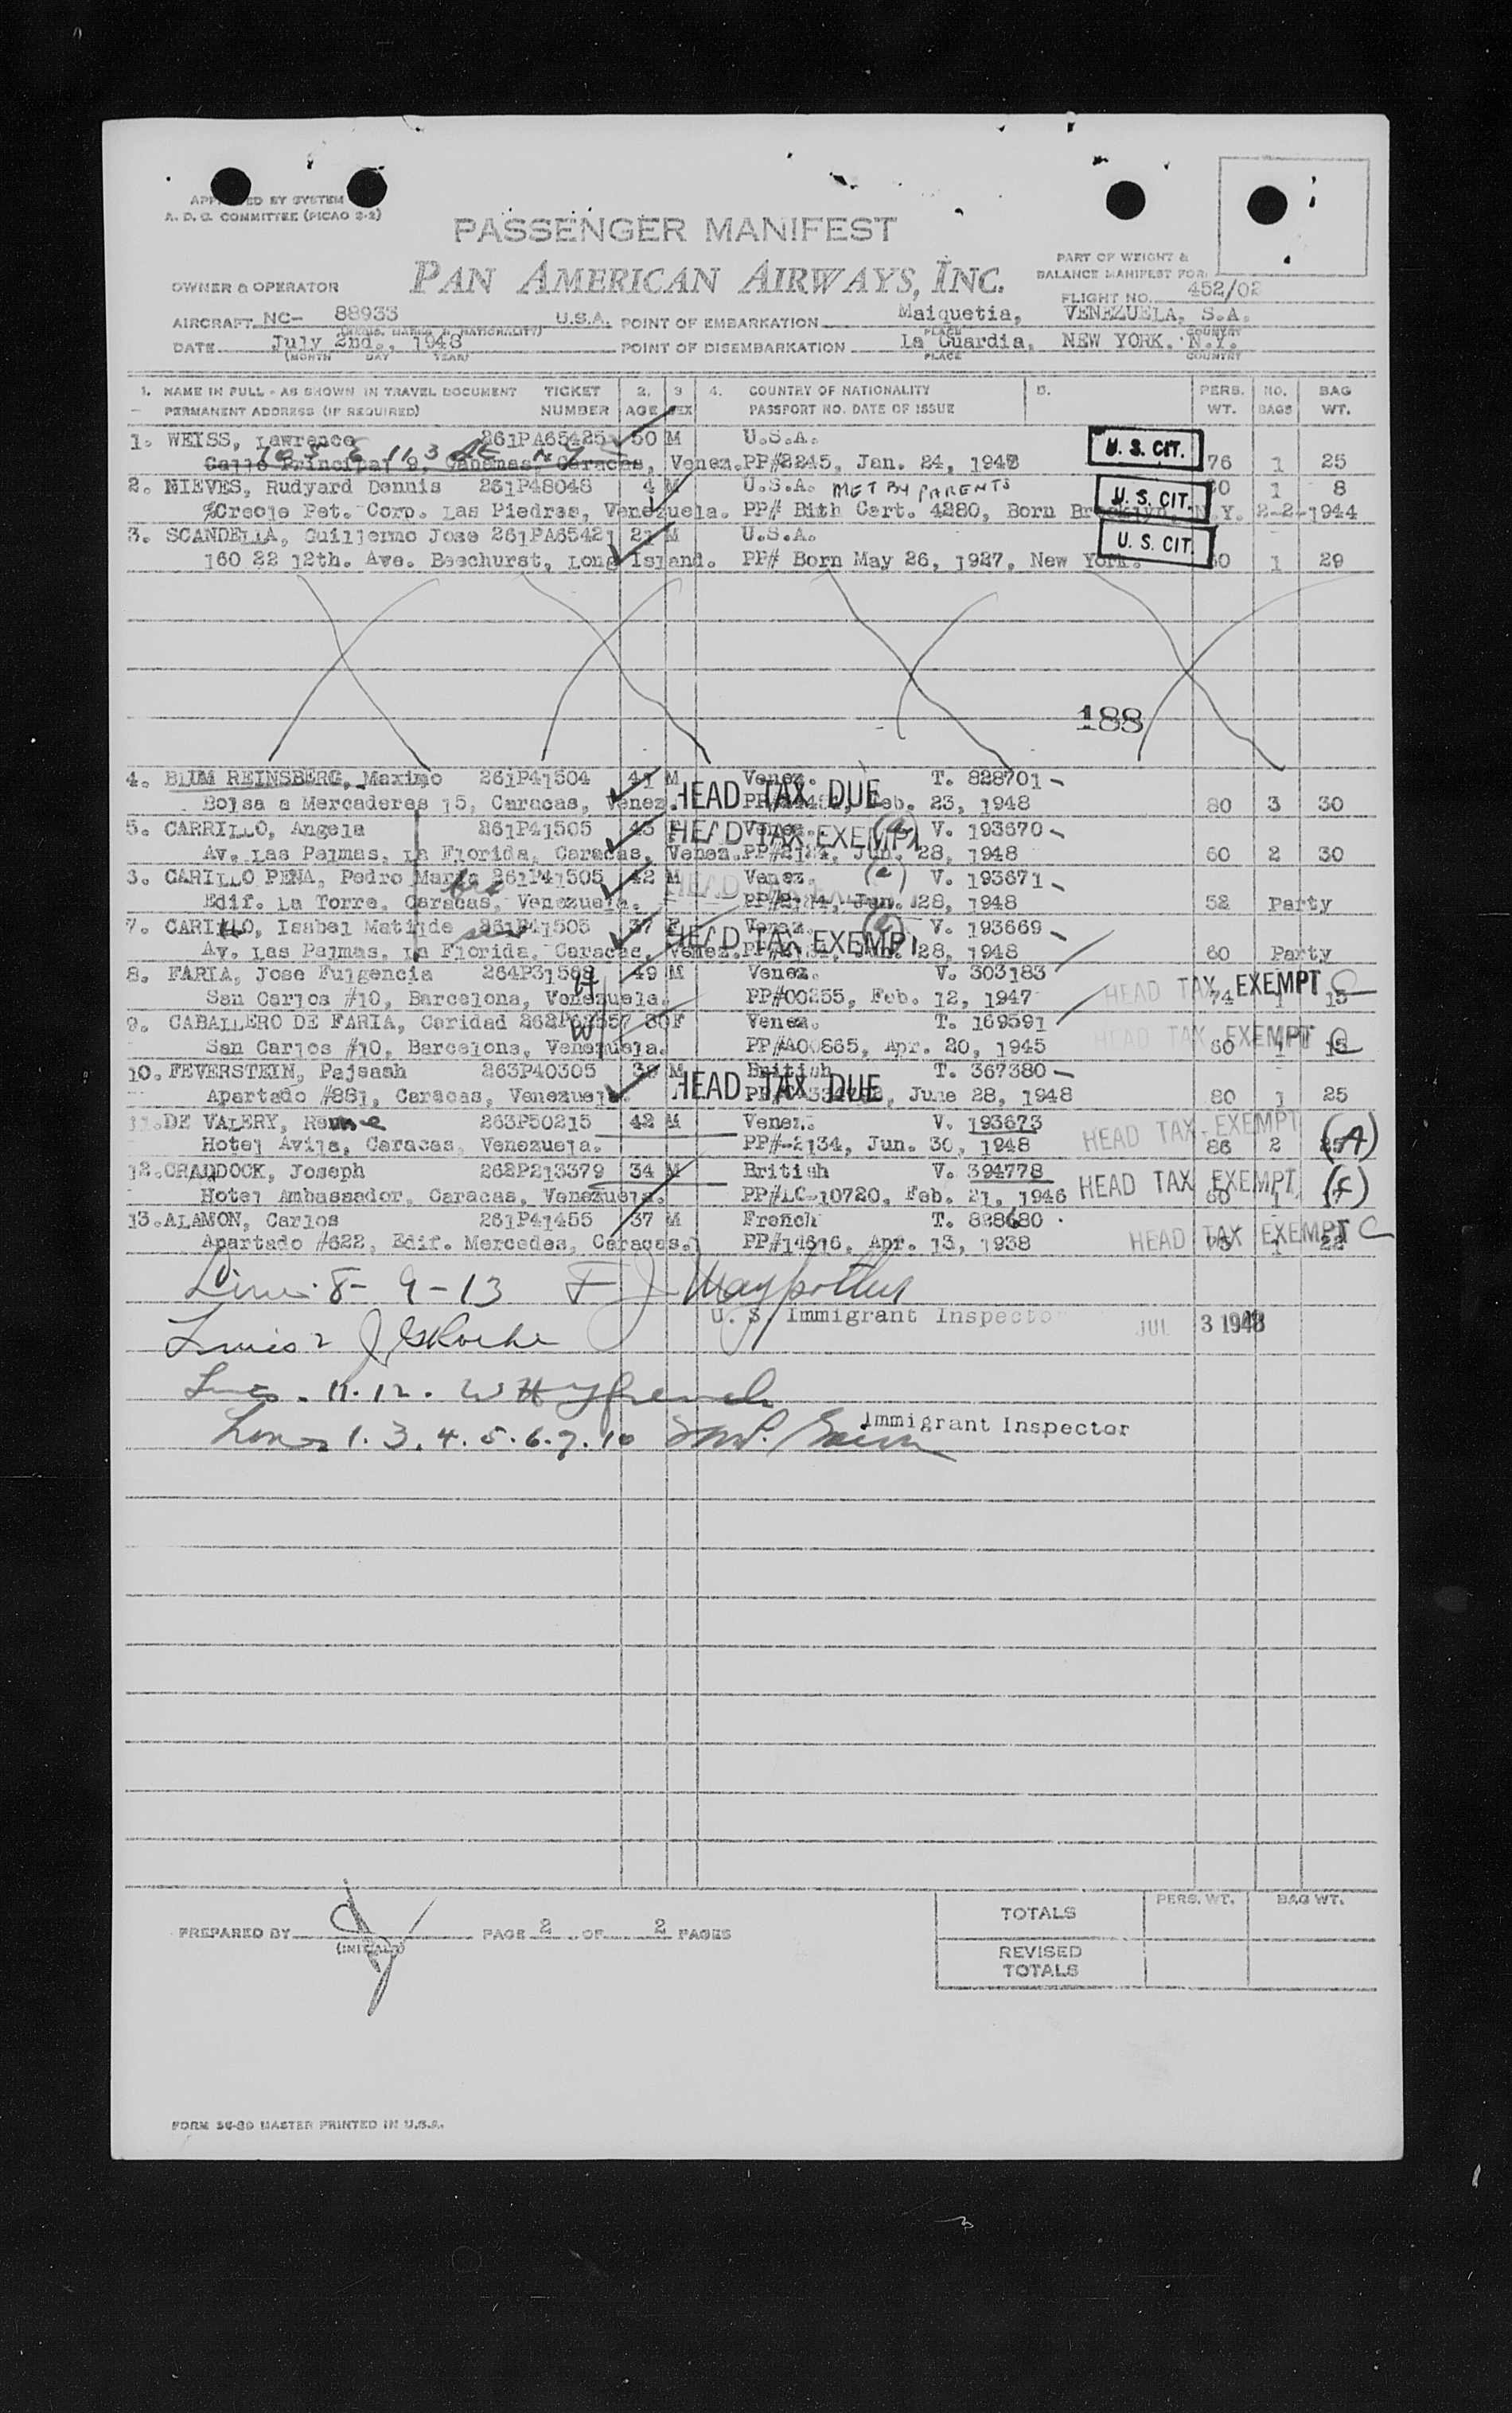 APPROVED BY SYSTEM
A. D. C. COMMITTEE (PICAO 2-2)
PASSENGER MANIFEST
PAN AMERICAN AIRWAYS, INC.
PART OF WEIGHT &
BALANCE MANIFEST FOR:
OWNER & OPERATOR
FLIGHT NO. 452/02
AIRCRAFT NC- 88933 U.S.A. POINT OF EMBARKATION Maiquetia, VENEZUELA, S.A.
PLACE COUNTRY
DATE July 2nd., 1948 POINT OF DISEMBARKATION La Guardia, NEW YORK. N.Y.
(MONTH DAY YEAR) PLACE COUNTRY
1. NAME IN FULL - AS SHOWN IN TRAVEL DOCUMENT TICKET 2. 3 4. COUNTRY OF NATIONALITY 5. PERS. NO. BAG
PERMANENT ADDRESS (IF REQUIRED) NUMBER AGE SEX PASSPORT NO. DATE OF ISSUE WT. BAGS WT.
1. WEISS, Lawrence 261PA65425 50 M U.S.A. U. S. CIT.
105 E 113 St N Y
Calle Principal 9, Cabanas Caracas, Venez. PP#2245, Jan. 24, 1948 76 1 25
2. NIEVES, Rudyard Dennis 261P48048 4 M U.S.A. MET BY PARENTS 1 8
%Creole Pet. Corp. Las Piedras, Venezuela. PP# Bith Cert. 4280, Born Brooklyn, N.Y. 2-2-1944 U. S. CIT.
3. SCANDELLA, Guillermo Jose 261PA65421 21 M U.S.A. U. S. CIT.
160 22 12th. Ave. Beechurst, Long Island. PP# Born May 26, 1927, New York. 1 29
188
4. BLUM REINSBERG, Maximo 261P41504 41 M Venez. T. 828701
HEAD TAX DUE
Bolsa a Mercaderes 15, Caracas, Venez. Feb. 23, 1948 80 3 30
5. CARRILLO, Angela 261P41505 45 F Venez. (a) V. 193670
HEAD TAX EXEMPT
Av. Las Palmas, La Florida, Caracas, Venez. Jun. 28, 1948 60 2 30
3. CARILLO PENA, Pedro Maria 261P41505 42 M Venez. (a) V. 193671
bro
Edif. La Torre, Caracas, Venezuela. Jun. 28, 1948 52 Party
7. CARILLO, Isabel Matilde 261P41505 37 F Venez. (a) V. 193669
HEAD TAX EXEMPT
Av. Las Palmas, La Florida, Caracas, Venez. 28, 1948 60 Party
8. FARIA, Jose Fulgencia 49 M Venez. V. 303183
H HEAD TAX EXEMPT C
San Carlos #10, Barcelona, Venezuela. PP#00255, Feb. 12, 1947 74 1 15
9. CABALLERO DE FARIA, Caridad 30 F Venez. T. 169591
W HEAD TAX EXEMPT C
San Carlos #10, Barcelona, Venezuela. PP#A00865, Apr. 20, 1945 60 1 15
10. FEVERSTEIN, Pajsach 263P40305 39 M British T. 367380
HEAD TAX DUE
Apartado #881, Caracas, Venezuela. June 28, 1948 80 1 25
11. DE VALERY, Rene 263P50215 42 M Venez. V. 193673
HEAD TAX EXEMPT (A)
Hotel Avila, Caracas, Venezuela. PP#-2134, Jun. 30, 1948 86 2 25
12. CRADDOCK, Joseph 262P213379 34 M British V. 394778
HEAD TAX EXEMPT (F)
Hotel Ambassador, Caracas, Venezuela. PP#LC-10720, Feb. 21, 1946 60 1
13. ALAMON, Carlos 261P41455 37 M French T. 828680
HEAD TAX EXEMPT C
Apartado #622, Edif. Mercedes, Caracas. PP#14616, Apr. 13, 1938 1 22
Lines 8- 9-13 F J
U. S. Immigrant Inspector JUL 3 1948
Lines 2
Lines. 11.12. W H
Lines 1. 3. 4. 5. 6. 7. 10 Immigrant Inspector
PREPARED BY PAGE 2 OF 2 PAGES
(INITIALS)
PERS. WT. BAG WT.
TOTALS
REVISED
TOTALS
FORM 36-80 MASTER PRINTED IN U.S.A.